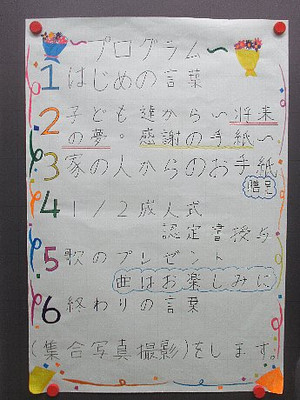 〜プログラム〜
1 はじめの言葉
2 子ども達から〜将来
の夢。感謝の手紙〜
3 家の人からのお手紙
贈呈
4 1/2成人式
認定書授与
5 歌のプレゼント
曲はお楽しみに
6 終わりの言葉
(集合写真撮影)をします。